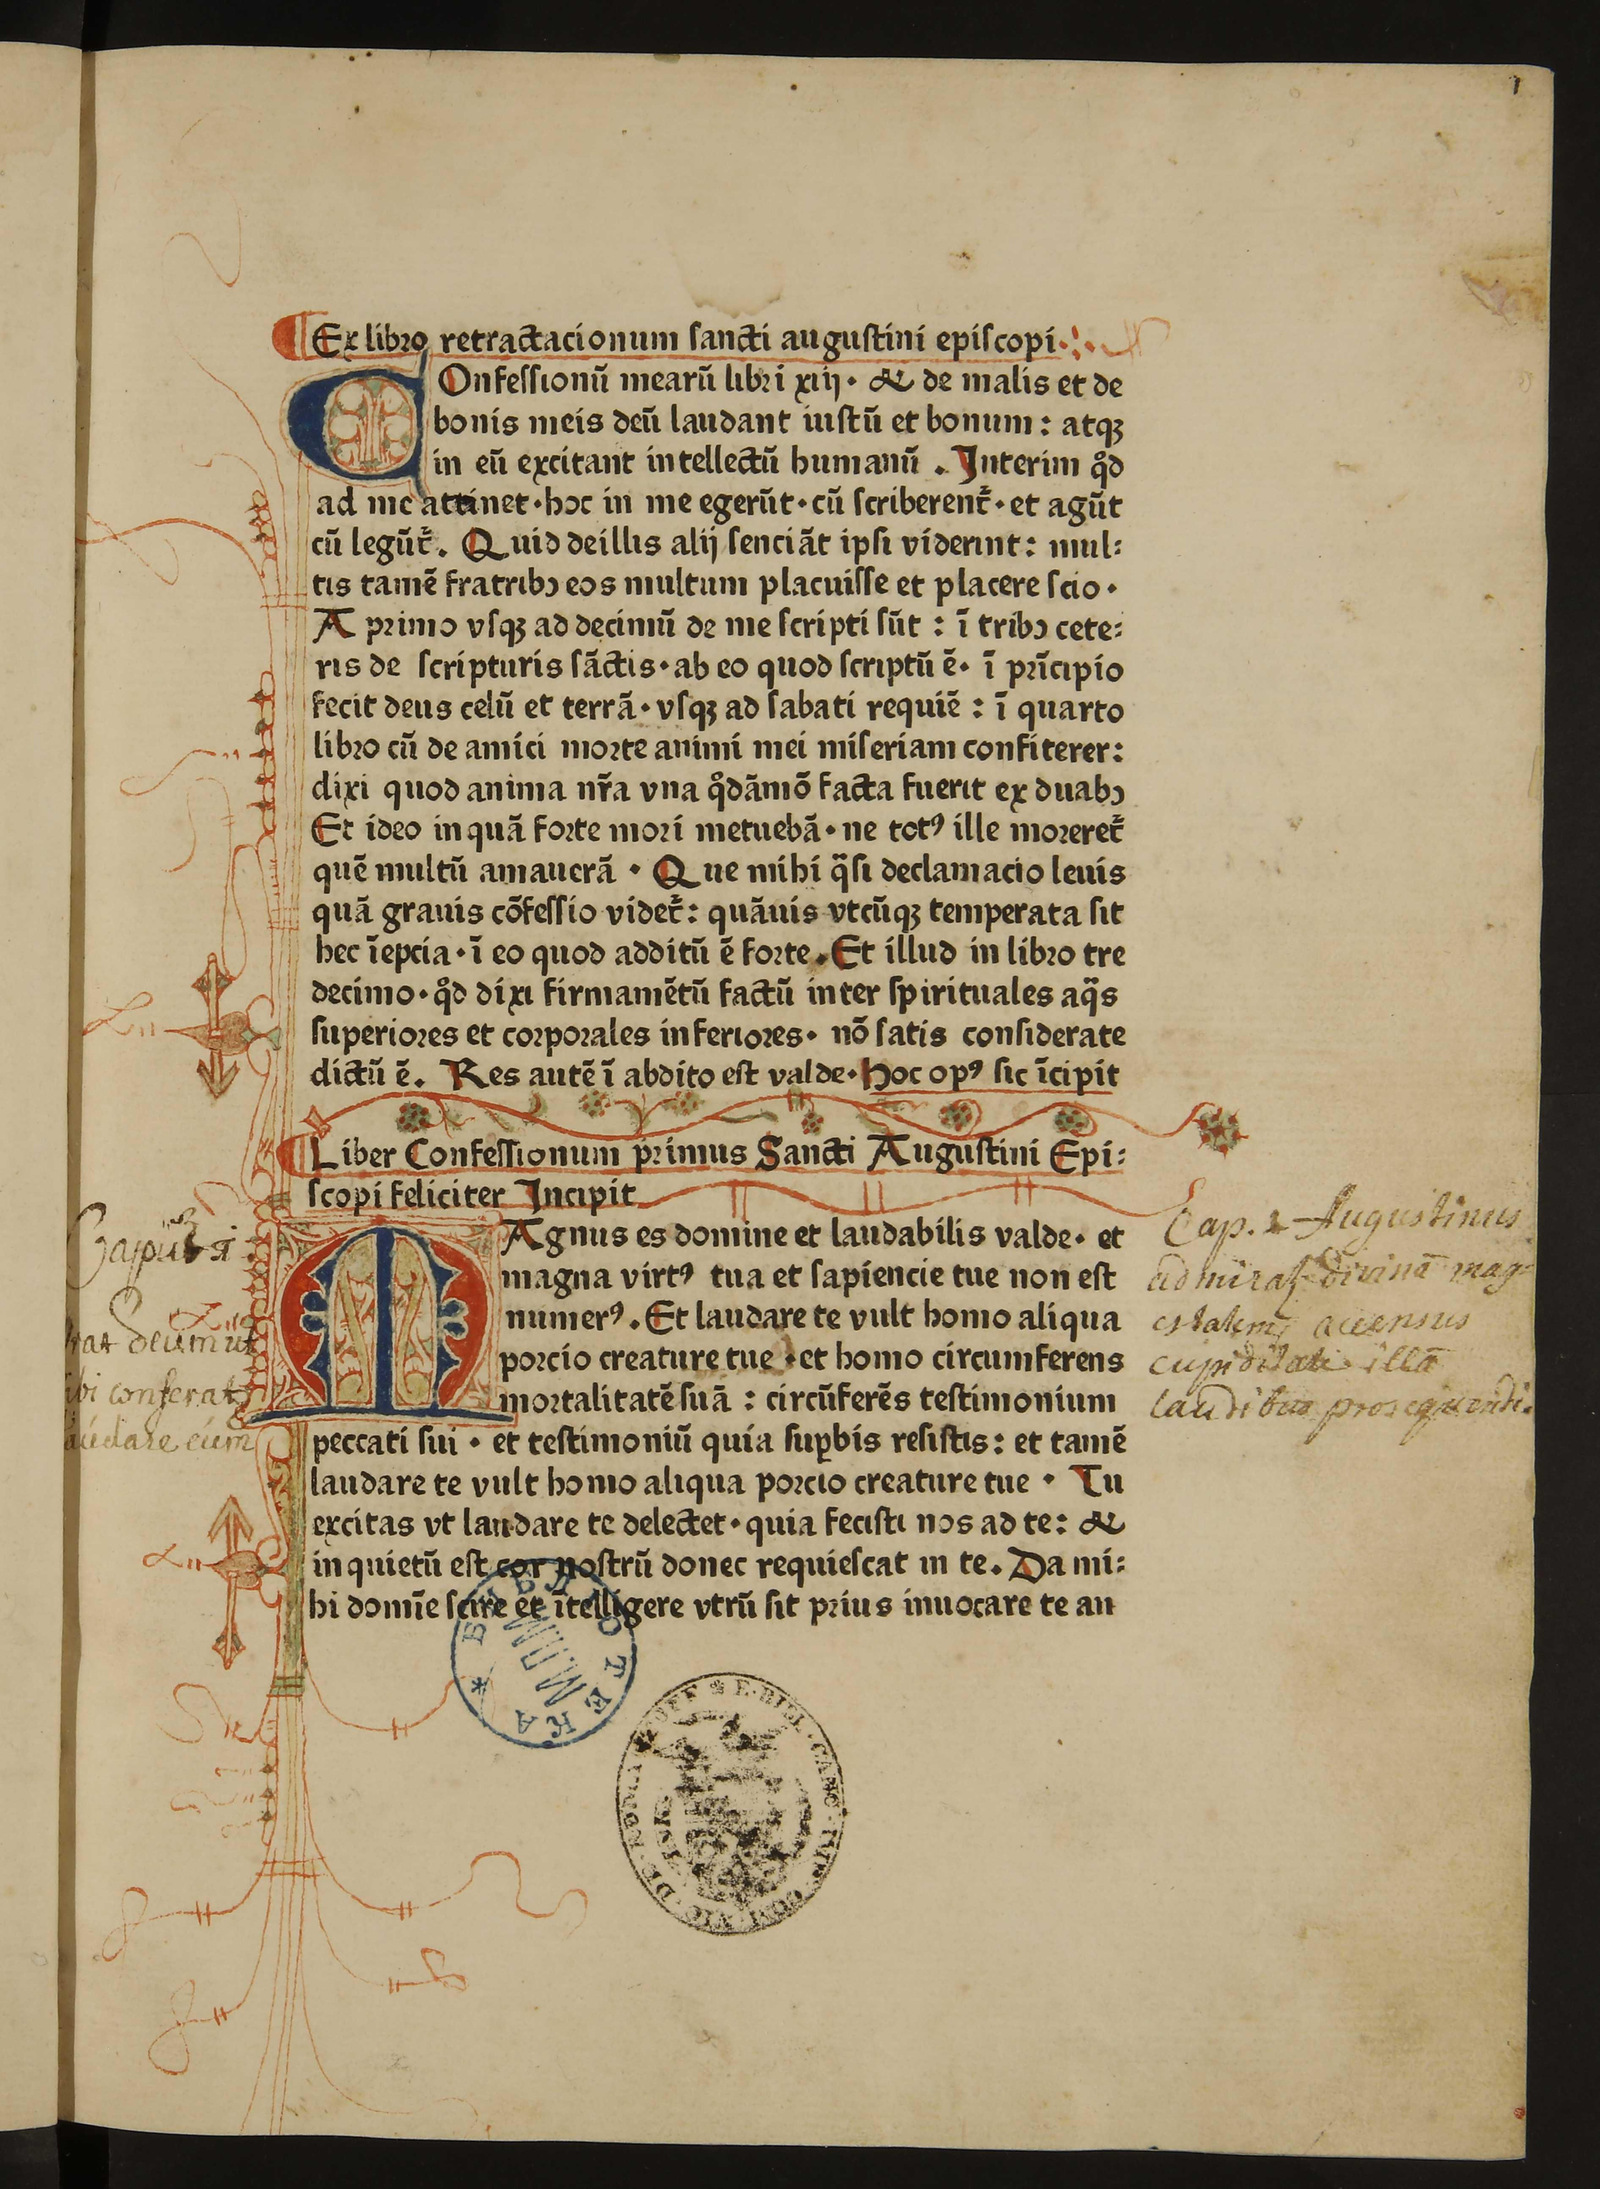 Ex libro retractacionum sancti augustini episcopi
COnfessionū mearū libri xiij· & de malis et de
bonis meis deū laudant iustū et bonum : atqȝ
in eū excitant intellectū humanū . Interim qͦd
ad me attinet·hoc in me egerūt·cū scriberent᷑·et agūt
cū legūt᷑. Quid deillis alij senciāt ipsi viderint: mul:
tis tamē fratribꝫ eos multum placuisse et placere scio·
A primo vsqȝ ad decimū de me scripti sūt : ī tribꝫ cete:
ris de scripturis sāctis·ab eo quod scriptū ē· ī pn̄cipio
fecit deus celū et terrā·vsqȝ ad sabati requiē : ī quarto
libro cū de amici morte animi mei miseriam confiterer:
dixi quod anima nr̄a vna qͦdāmō facta fuerit ex duabꝫ
Et ideo inquā forte mori metuebā·ne totꝰ ille moreret᷑
quē multū amauerā · Que mihi q̄si declamacio leuis
quā grauis cōfessio videt᷑: quāuis vtcūqȝ temperata sit
hec īepcia·ī eo quod additū ē forte.Et illud in libro tre
decimo·qͦd dixi firmamētū factū inter spirituales aq̄s
superiores et corporales inferiores· nō satis considerate
dictū ē. Res autē ī abdito est valde·Hoc opꝰ sic īcipit
Liber Confessionum primus Sancti Augustini Epi:
scopi feliciter Incipit
MAgnus es domine et laudabilis valde· et
magna virtꝰ tua et sapiencie tue non est
numerꝰ.Et laudare te vult homo aliqua
porcio creature tue ·et homo circumferens
mortalitatē suā : circūferēs testimonium
peccati sui · et testimoniū quia suꝑbis resistis: et tamē
laudare te vult homo aliqua porcio creature tue · Tu
excitas vt laudare te delectet·quia fecisti nos ad te: &
inquietū est cor nostrū donec requiescat in te. Da mi:
hi domīe scire et ītelligere vtrū sit prius inuocare te an
Caput 1
tat Deum ut
ibi conferat
laudare eum
Cap. 1 Augustinus
admirat divinā mag-
estatem accensus
cupiditate illā
laudibus prosequendi.
BIBLIOTEKA
1